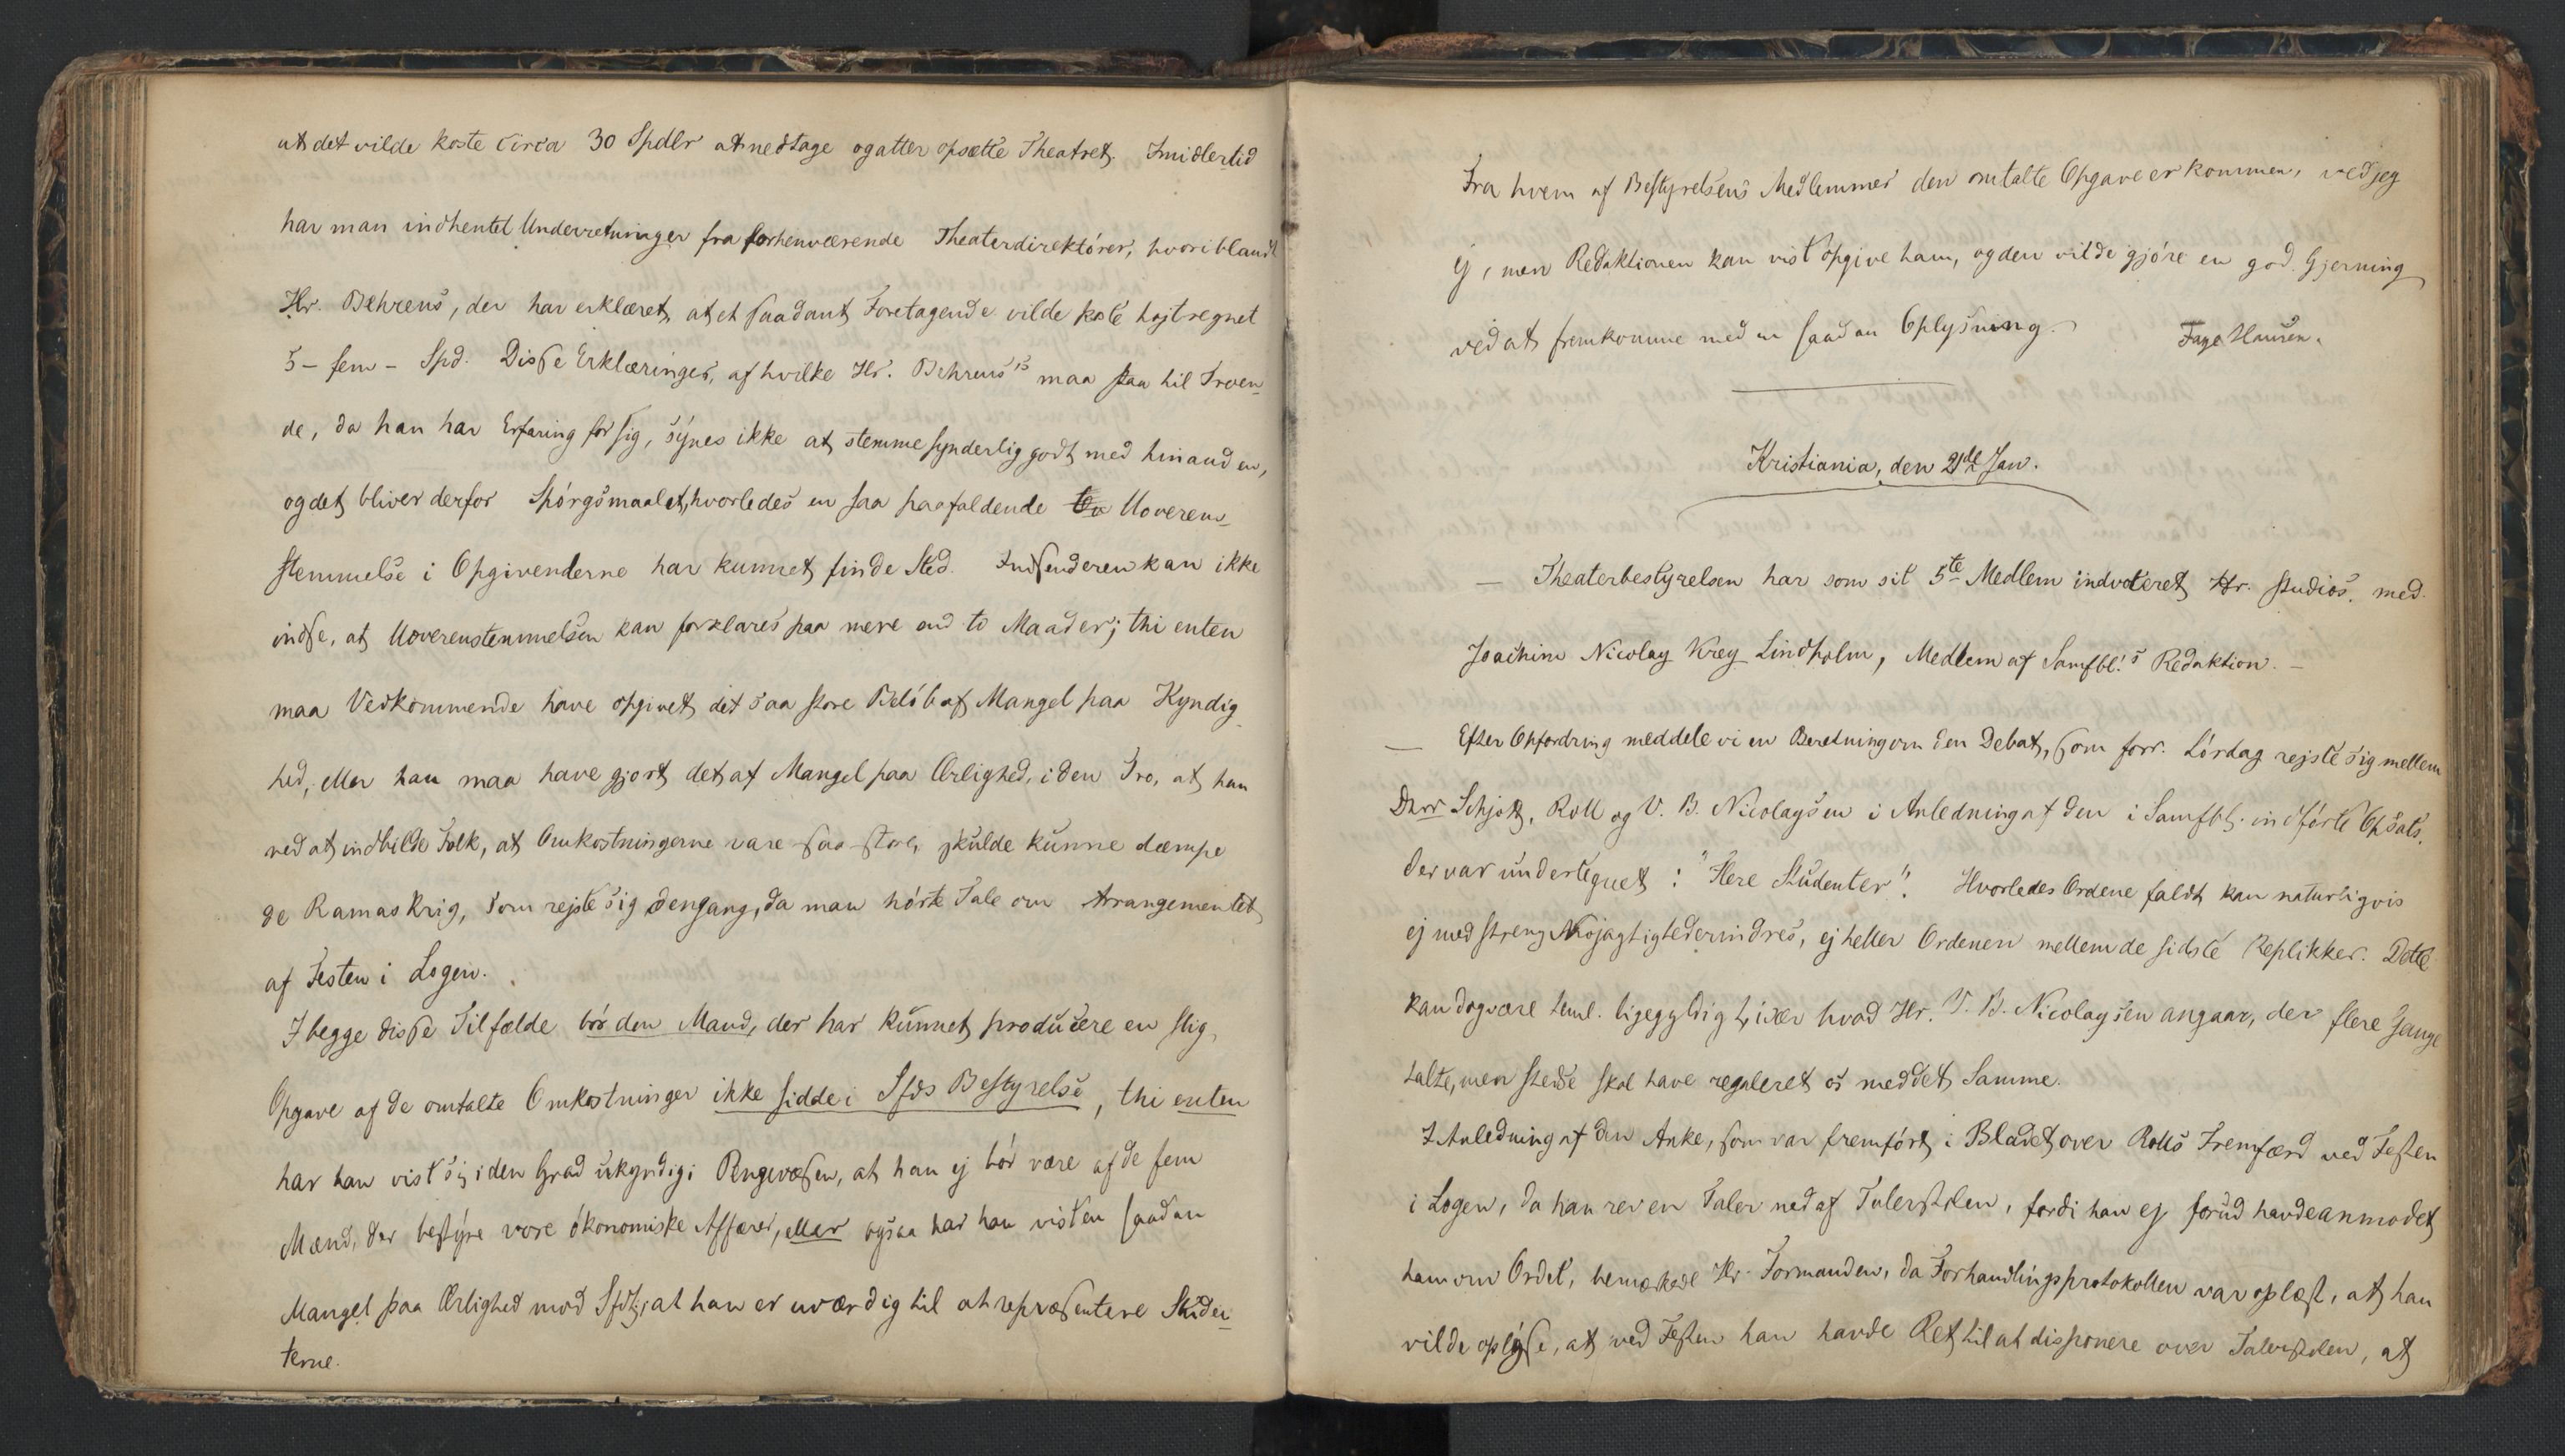 at det vilde koste circa 30 Spdlr at nedtage og atter opsætte Theatret. Imidlertid
har man indhentet Underretninger fra forhenværende Theaterdirektører, hvoriblandt
Hr. Behrens, der har erklæret, at et saadant Foretagende vilde koste højt regnet
5 – fem – Spd. Disse Erklæringer, af hvilke Hr. Behrens's maa staa til Troen-
de, da han har Erfaring for sig, synes ikke at stemme synderlig godt med hinanden,
og det bliver derfor Spørgsmaalet, hvorledes en saa paafaldende Uoverens-
stemmelse i Opgivenderne har kunnet finde Sted. Indsenderen kan ikke
indse, at Uoverenstemmelsen kan forklares paa mere end to Maader; thi enten
maa Vedkommende have opgivet det saa store Beløb af Mangel paa Kyndig-
hed, eller han maa have gjort det af Mangel paa Ærlighed, i den Tro, at han
ved at indbilde Folk, at Omkostningerne vare saa store, skulde kunne dæmpe
de Ramaskrig, som rejste sig dengang, da man hørte Tale om Arrangementet
af Festen i Logen.
I begge disse Tilfælde bør den Mand, der har kunnet producere en slig
Opgave af de omtalte Omkostninger ikke sidde i Sfds Bestyrelse, thi enten
har han vist sig i den Grad ukyndig i Pengevæsen, at han ej bør være af de fem
Mænd, der bestyre vore økonomiske Affærer, eller ogsaa har han vist en saadan
Mangel paa Ærlighed mod Sfdt, at han er uværdig til at repræsentere Studen-
terne.
Fra hvem af Bestyrelsens Medlemmer den omtalte Opgave er kommen, ved jeg
ej, men Redaktionen kan vist opgive ham, og den vilde gjøre en god Gjerning
ved at fremkomme med en saadan Oplysning. Fage Hansen.
Kristiania, den 21de Jan.
— Theaterbestyrelsen har som sit 5te Medlem indvoteret Hr. studios. med.
Joachim Nicolay Krey Lindholm, Medlem af Samfbl.'s Redaktion. –
— Efter Opfordring meddele vi en Beretning om den Debat, som forr. Lørdag rejste sig mellem
Drr Schjøtt, Roll og V. B. Nicolaysen i Anledning af den i Samfbl. indførte Opsats,
der var undertegnet: "Flere Studenter". Hvorledes Ordene faldt kan naturligvis
ej med streng Nøjagtighed erindres, ej heller Ordenen mellem de sidste Replikker. Dette
kan dog være teml. ligegyldigt, især hvad Hr. V. B. Nicolaysen angaar, der flere Gange
talte, men stedse skal have regaleret os med det Samme.
I Anledning af den Anke, som var fremført i Bladet over Rolls Fremfærd ved Festen
i Logen, da han rev en Taler ned af Talerstolen, fordi han ej forud havde anmodet
ham om Ordet, bemærkede Hr. Formanden, da Forhandlingsprotokollen var oplæst, at han
vilde oplyse, at ved Festen han havde Ret til at disponere over Talerstolen, at